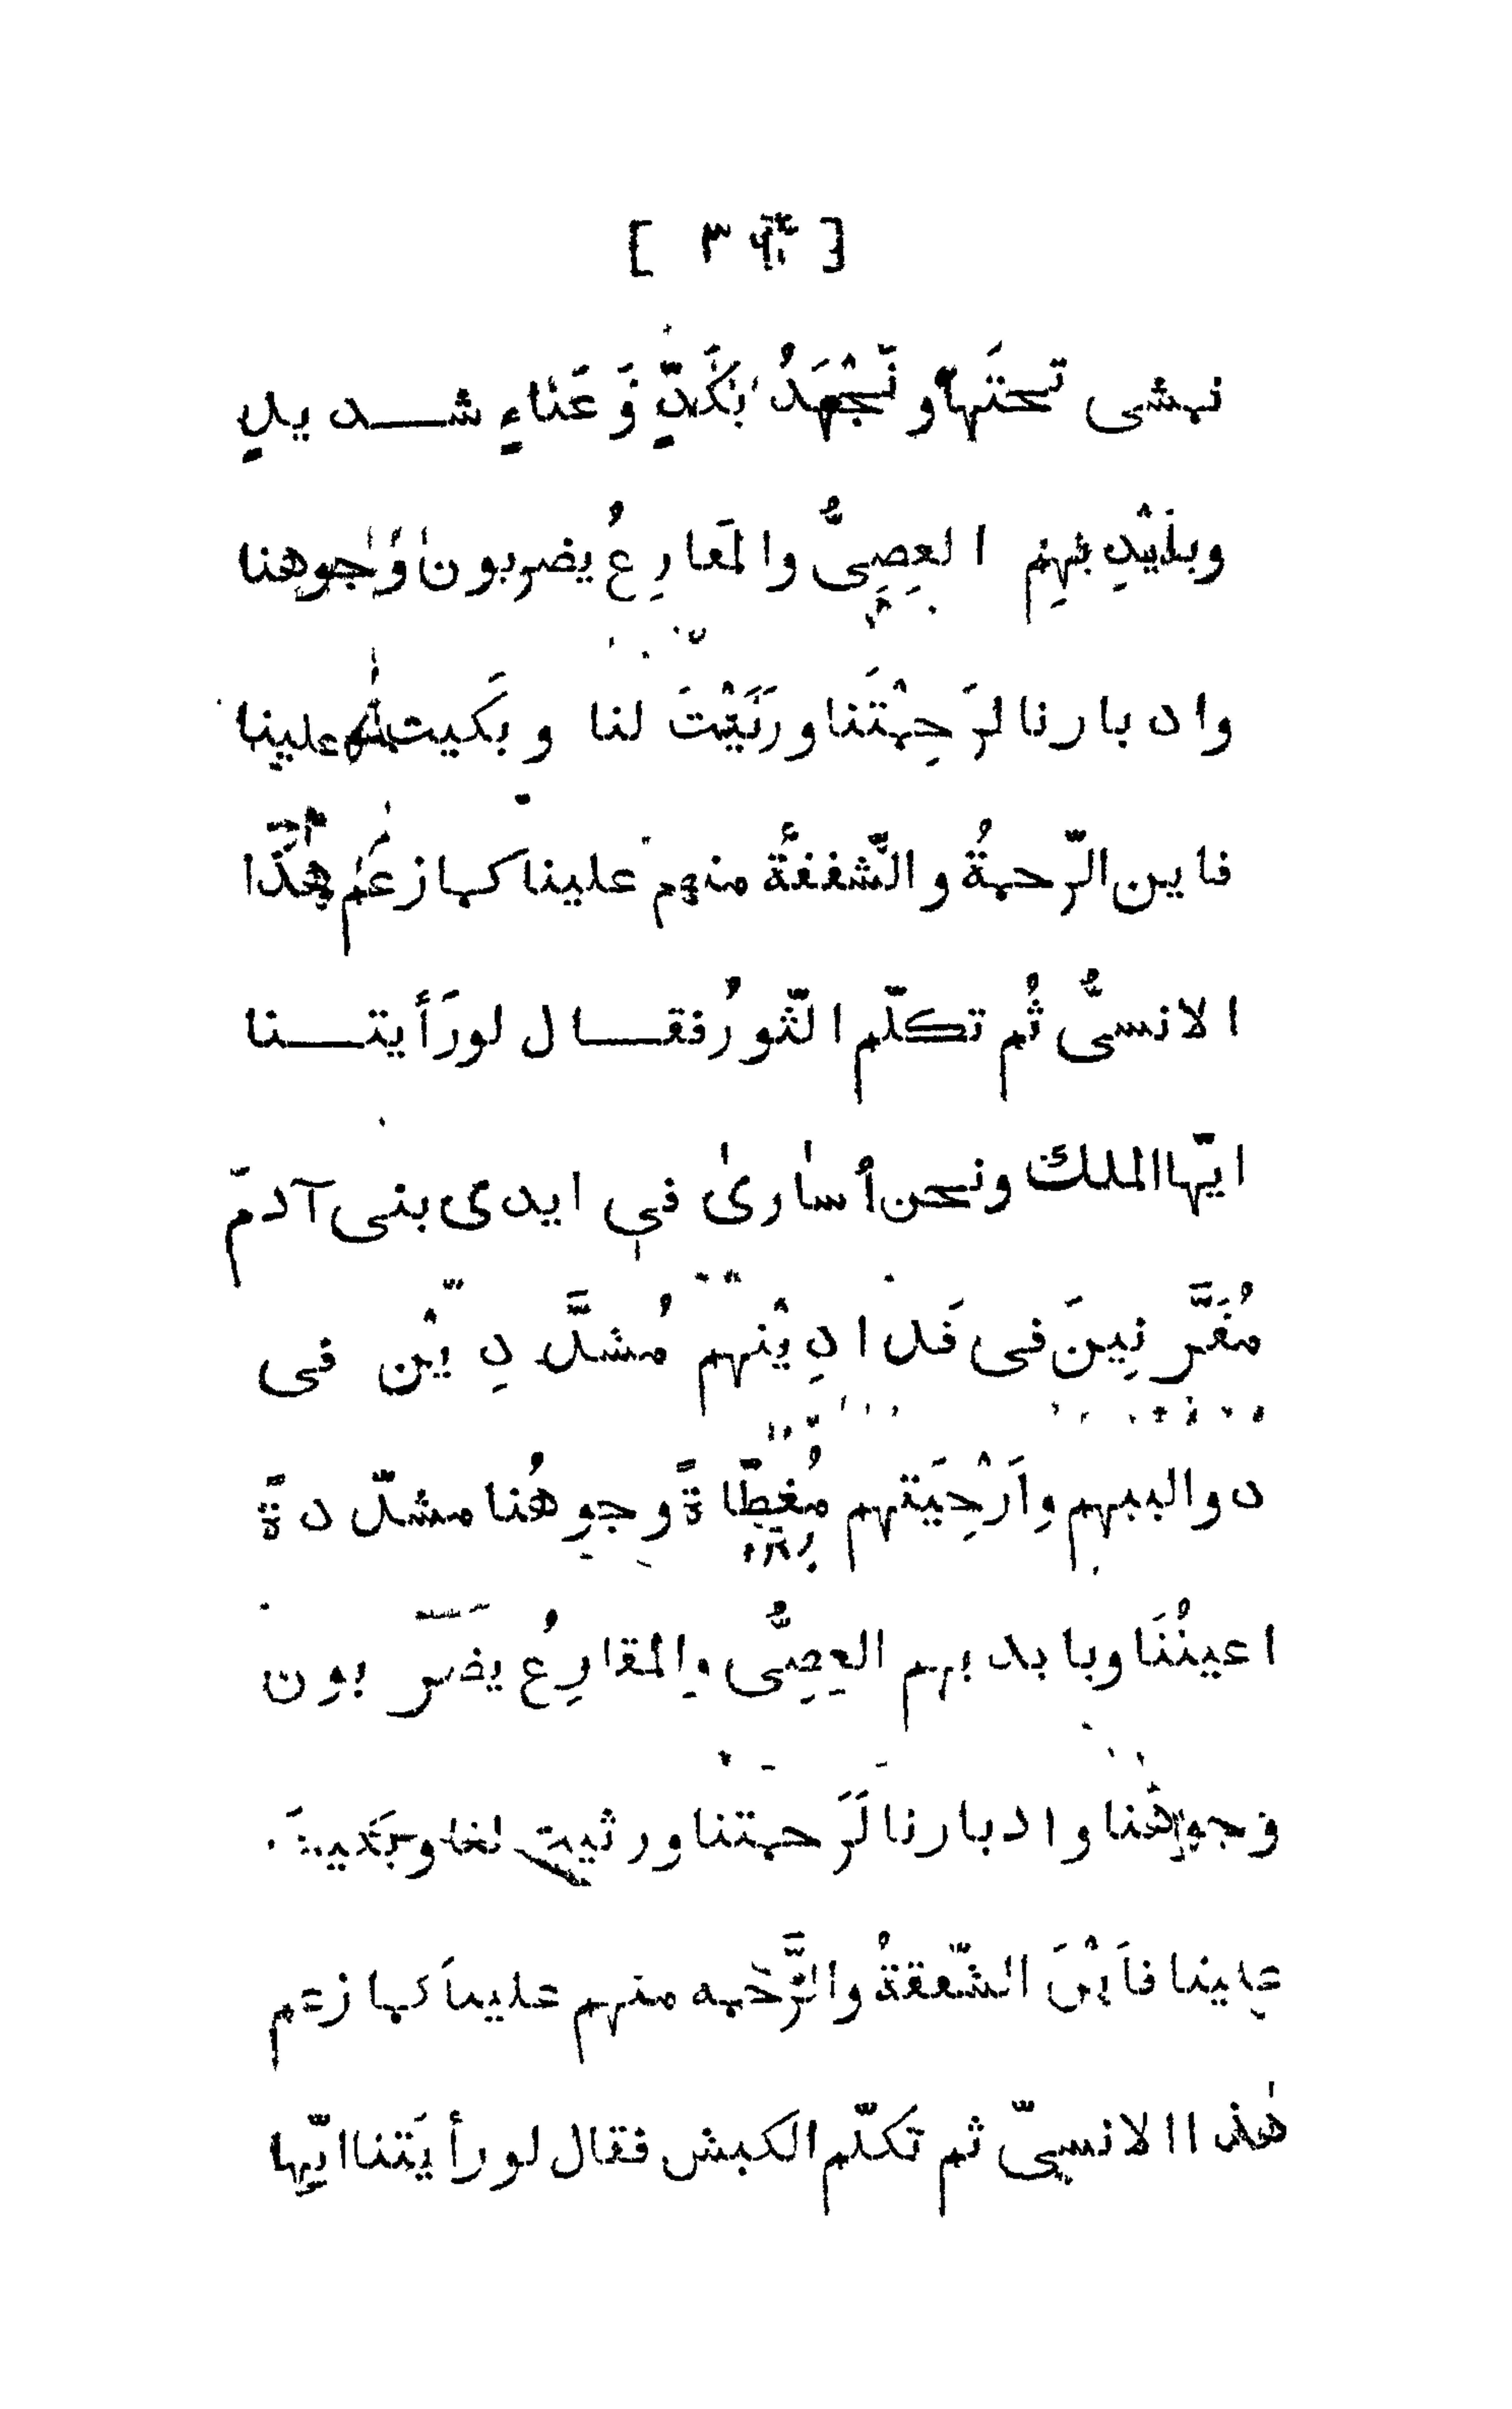 نمشى تحتَها و نَجْهَدُ بكَدٍّ وَ عَناءٍ شديدٍ
وبايْدِيهِم العِصِىُّ والمَقارِعُ يضربون وُجوهنا
وادبارنا لرَحِمْتَنا ورَثَيْتَ لنا وبَكيت علينا
فاين الرّحمةُ والشّفقةُ منهم علينا كما زعَم هٰذا
الانسىُّ ثُم تكلّم الثّورُ فقال لو رَأيتنا
ايّها الملك ونحن أسارىٰ فى ايدى بنى آدمَ
مُقَرَّنِينَ فى فَدادِيْنهم مُشدَّدِيْن فى
دواليبهم واَرْحِيَتهم مُغطّاةً وجوهُنا مشدّدةً
اعينُنَا وبايديهم العِصِىُّ والمقارِعُ يضربون
وجوهَنا وادبارنا لَرَحمتنا ورثيت لنا وبَكيتَ
علينا فاَيْنَ الشّفقةُ والرَّحمه منهم علينا كما زعم
هٰذا الانسىّ ثم تَكلّم الكبش فقال لو رأيَتنا ايّها